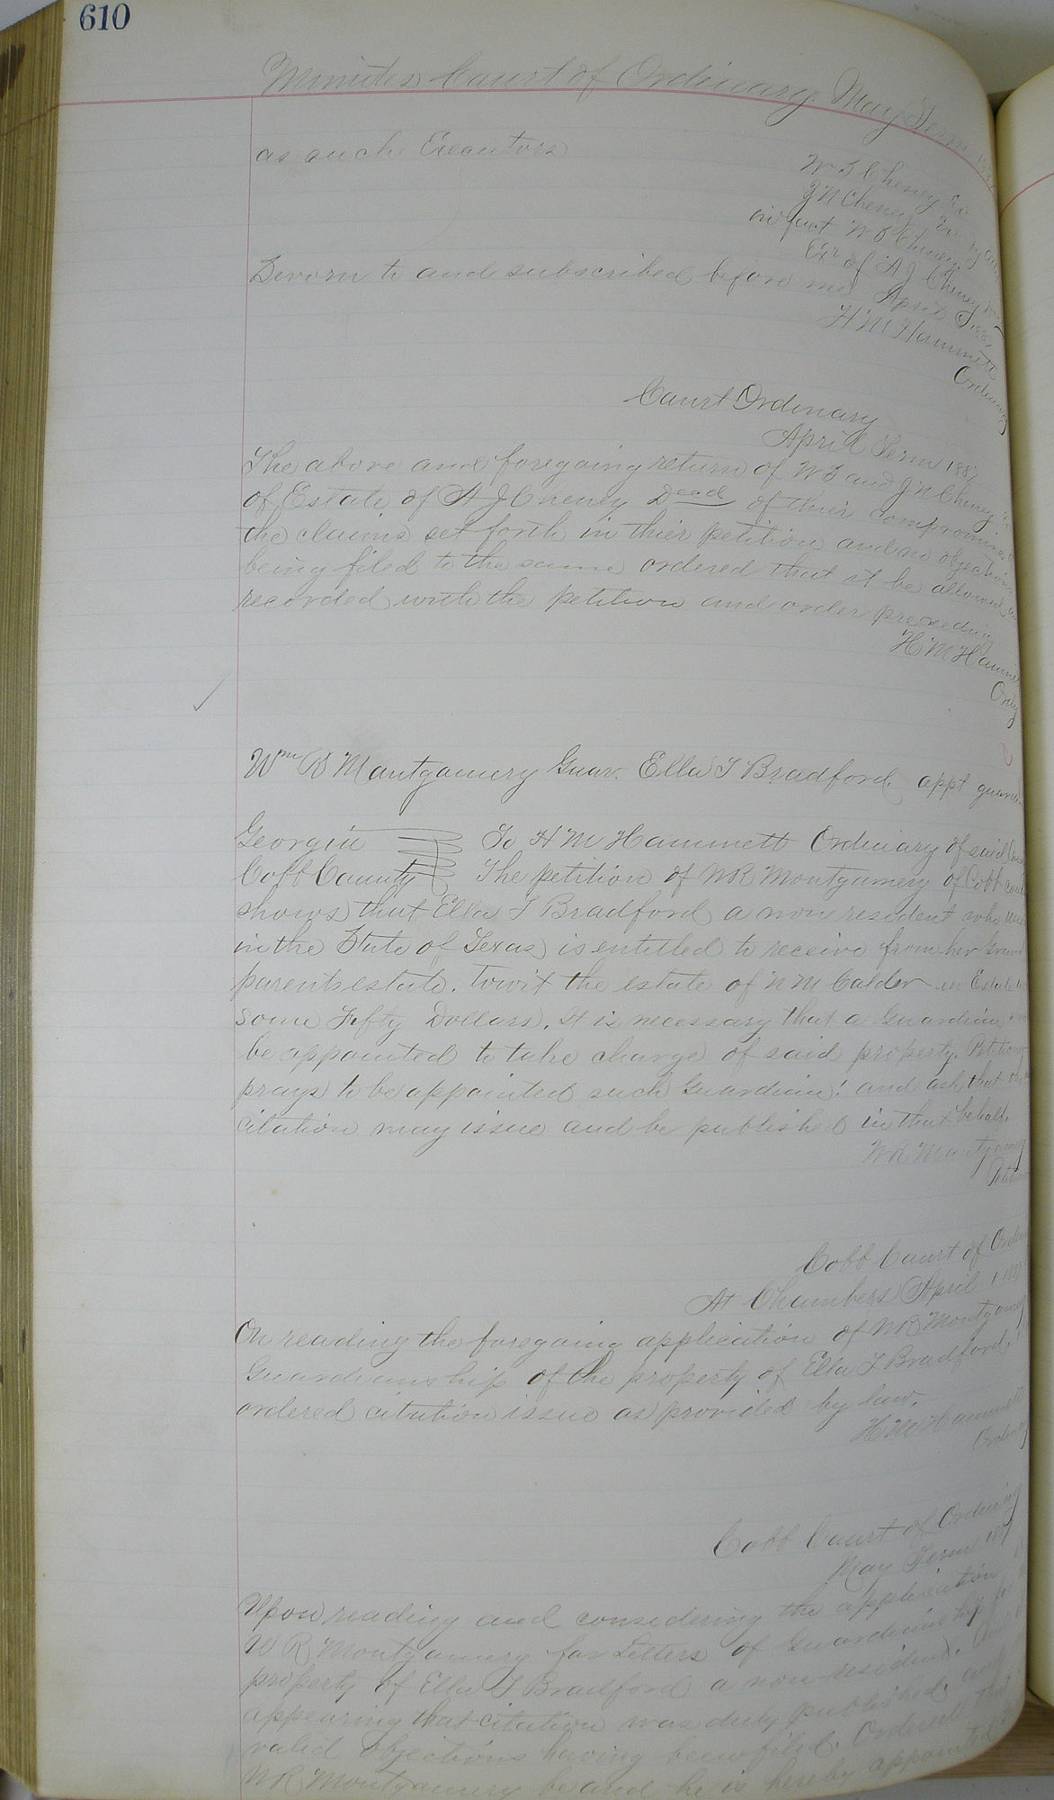 610
Minutes Court of Ordinary May Term
as such Executors
W T Cheney
J N Cheney
W T Cheney
Exr of A J Cheney
Sworn to and subscribed before me April
H M Hammett
Ordinary
Court Ordinary
April Term 1887
The above and foregoing return of W T and J N Cheney
of Estate of A J Cheney Decd of their compromise
the claims set forth in thier petition and no objection
being filed to the same ordered that it be allowed
recorded with the petition and order preceding
H M Hammett
Ordy
Wm R Montgomery Guar. Ella T Bradford appt guardian
Georgia To H M Hammett Ordinary of said
Cobb County The petition of W R Montgomery of Cobb
shows that Ella T Bradford a non resident who
in the State of Texas is entitled to receive from her Grand
parents estate. towit the estate of N M Calder in Estate
some Fifty Dollars. it is necessary that a Guardian
be appointed to take charge of said property.
prays to be appointed such Guardian! and ask that
citation may issue and be published in that behalf.
W R Montgomery
Cobb Court of
At Chambers April
On reading the foregoing application of W R Montgomery
Guardianship of the property of Ella T Bradford
ordered citation issue as provided by law.
H M Hammett
Ordinary
Cobb Court of Ordinary
May Term 1887
Upon reading and considering the application
W R Montgomery for Letters of Guardianship
property of Ella T Bradford a non resident.
appearing that citation was duly published and
valid objections having been filed. Ordered that
W R Montgomery be and he is hereby appointed